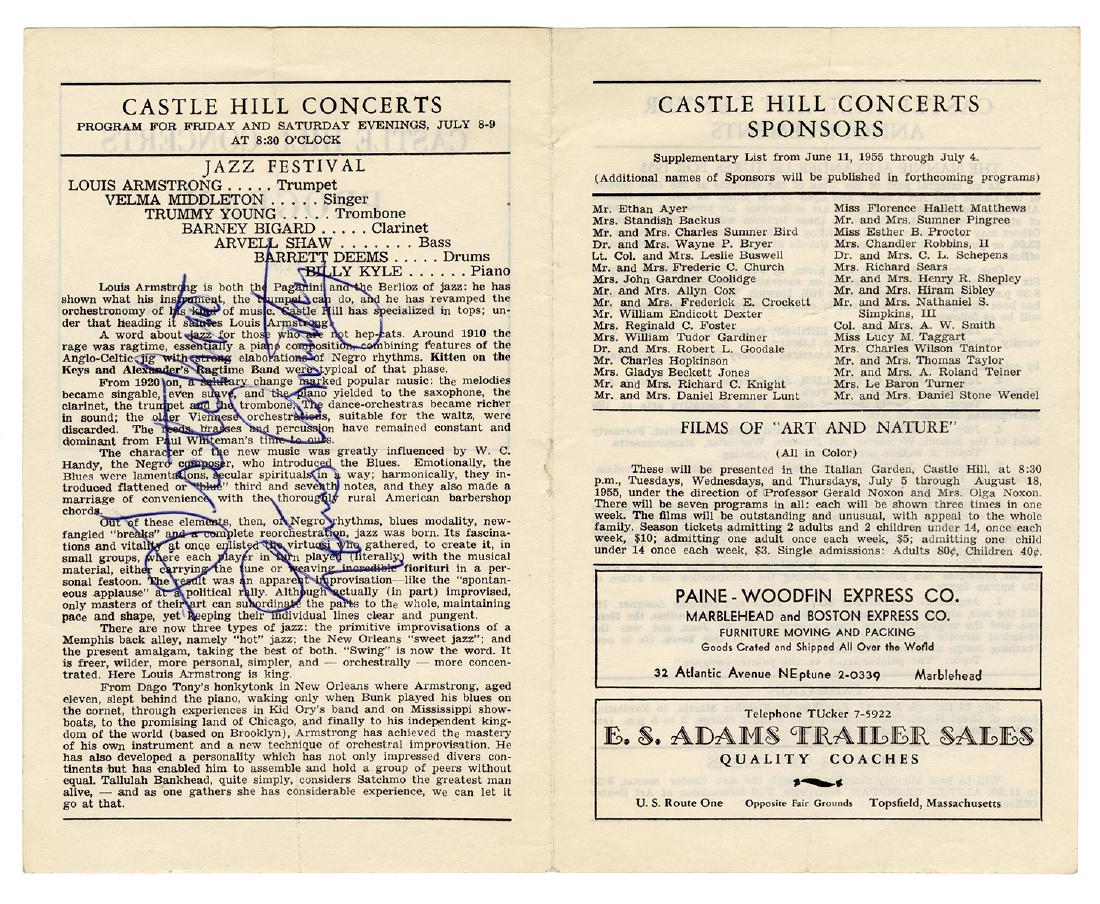 CASTLE HILL CONCERTS
PROGRAM FOR FRIDAY AND SATURDAY EVENINGS, JULY 8-9
AT 8:30 O'CLOCK
JAZZ FESTIVAL
LOUIS ARMSTRONG . . . . . Trumpet
VELMA MIDDLETON . . . . . Singer
TRUMMY YOUNG . . . . . Trombone
BARNEY BIGARD . . . . . Clarinet
ARVELL SHAW . . . . . . . Bass
BARRETT DEEMS . . . . . Drums
BILLY KYLE . . . . . . Piano
Louis Armstrong is both the Paganini the Berlioz of jazz: he has
shown what his instrument, the trumpet can do, and he has revamped the
orchestronomy of his kind of music. Castle Hill has specialized in tops; un-
der that heading it salutes Louis Armstrong.
A word about jazz for those who are not hep-cats. Around 1910 the
rage was ragtime, essentially a piano composition, combining features of the
Anglo-Celtic jig with strong elaborations of Negro rhythms. Kitten on the
Keys and Alexander's Ragtime Band were typical of that phase.
From 1920 on, a salutary change marked popular music: the melodies
became singable, even suave, and the piano yielded to the saxophone, the
clarinet, the trumpet and the trombone. The dance-orchestras became richer
in sound; the older Viennese orchestrations, suitable for the waltz, were
discarded. The reeds, brasses and percussion have remained constant and
dominant from Paul Whiteman's time to ours.
The character of the new music was greatly influenced by W. C.
Handy, the Negro composer, who introduced the Blues. Emotionally, the
Blues were lamentations, secular spirituals in a way; harmonically, they in-
troduced flattened or "blue" third and seventh notes, and they also made a
marriage of convenience with the thoroughly rural American barbershop
chords.
Out of these elements, then, of Negro rhythms, blues modality, new-
fangled "breaks" and a complete reorchestration, jazz was born. Its fascina-
tions and vitality at once enlisted the virtuosi who gathered, to create it, in
small groups, where each player in turn played (literally) with the musical
material, either carrying the tune or weaving incredible fiorituri in a per-
sonal festoon. The result was an apparent improvisation—like the "spontan-
eous applause" at a political rally. Although actually (in part) improvised,
only masters of their art can subordinate the parts to the whole, maintaining
pace and shape, yet keeping their individual lines clear and pungent.
There are now three types of jazz: the primitive improvisations of a
Memphis back alley, namely "hot" jazz; the New Orleans "sweet jazz"; and
the present amalgam, taking the best of both. "Swing" is now the word. It
is freer, wilder, more personal, simpler, and — orchestrally — more concen-
trated. Here Louis Armstrong is king.
From Dago Tony's honkytonk in New Orleans where Armstrong, aged
eleven, slept behind the piano, waking only when Bunk played his blues on
the cornet, through experiences in Kid Ory's band and on Mississippi show-
boats, to the promising land of Chicago, and finally to his independent king-
dom of the world (based on Brooklyn), Armstrong has achieved the mastery
of his own instrument and a new technique of orchestral improvisation. He
has also developed a personality which has not only impressed divers con-
tinents but has enabled him to assemble and hold a group of peers without
equal. Tallulah Bankhead, quite simply, considers Satchmo the greatest man
alive, — and as one gathers she has considerable experience, we can let it
go at that.
Louis Armstrong
CASTLE HILL CONCERTS
SPONSORS
Supplementary List from June 11, 1955 through July 4.
(Additional names of Sponsors will be published in forthcoming programs)
Mr. Ethan Ayer
Mrs. Standish Backus
Mr. and Mrs. Charles Sumner Bird
Dr. and Mrs. Wayne P. Bryer
Lt. Col. and Mrs. Leslie Buswell
Mr. and Mrs. Frederic C. Church
Mrs. John Gardner Coolidge
Mr. and Mrs. Allyn Cox
Mr. and Mrs. Frederick E. Crockett
Mr. William Endicott Dexter
Mrs. Reginald C. Foster
Mrs. William Tudor Gardiner
Dr. and Mrs. Robert L. Goodale
Mr. Charles Hopkinson
Mrs. Gladys Beckett Jones
Mr. and Mrs. Richard C. Knight
Mr. and Mrs. Daniel Bremner Lunt
Miss Florence Hallett Matthews
Mr. and Mrs. Sumner Pingree
Miss Esther B. Proctor
Mrs. Chandler Robbins, II
Dr. and Mrs. C. L. Schepens
Mrs. Richard Sears
Mr. and Mrs. Henry R. Shepley
Mr. and Mrs. Hiram Sibley
Mr. and Mrs. Nathaniel S.
Simpkins, III
Col. and Mrs. A. W. Smith
Miss Lucy M. Taggart
Mrs. Charles Wilson Taintor
Mr. and Mrs. Thomas Taylor
Mr. and Mrs. A. Roland Teiner
Mrs. Le Baron Turner
Mr. and Mrs. Daniel Stone Wendel
FILMS OF "ART AND NATURE"
(All in Color)
These will be presented in the Italian Garden, Castle Hill, at 8:30
p.m., Tuesdays, Wednesdays, and Thursdays, July 5 through August 18,
1955, under the direction of Professor Gerald Noxon and Mrs. Olga Noxon.
There will be seven programs in all: each will be shown three times in one
week. The films will be outstanding and unusual, with appeal to the whole
family. Season tickets admitting 2 adults and 2 children under 14, once each
week, $10; admitting one adult once each week, $5; admitting one child
under 14 once each week, $3. Single admissions: Adults 80¢, Children 40¢.
PAINE - WOODFIN EXPRESS CO.
MARBLEHEAD and BOSTON EXPRESS CO.
FURNITURE MOVING AND PACKING
Goods Crated and Shipped All Over the World
32 Atlantic Avenue NEptune 2-0339 Marblehead
Telephone TUcker 7-5922
E. S. ADAMS TRAILER SALES
QUALITY COACHES
U. S. Route One Opposite Fair Grounds Topsfield, Massachusetts